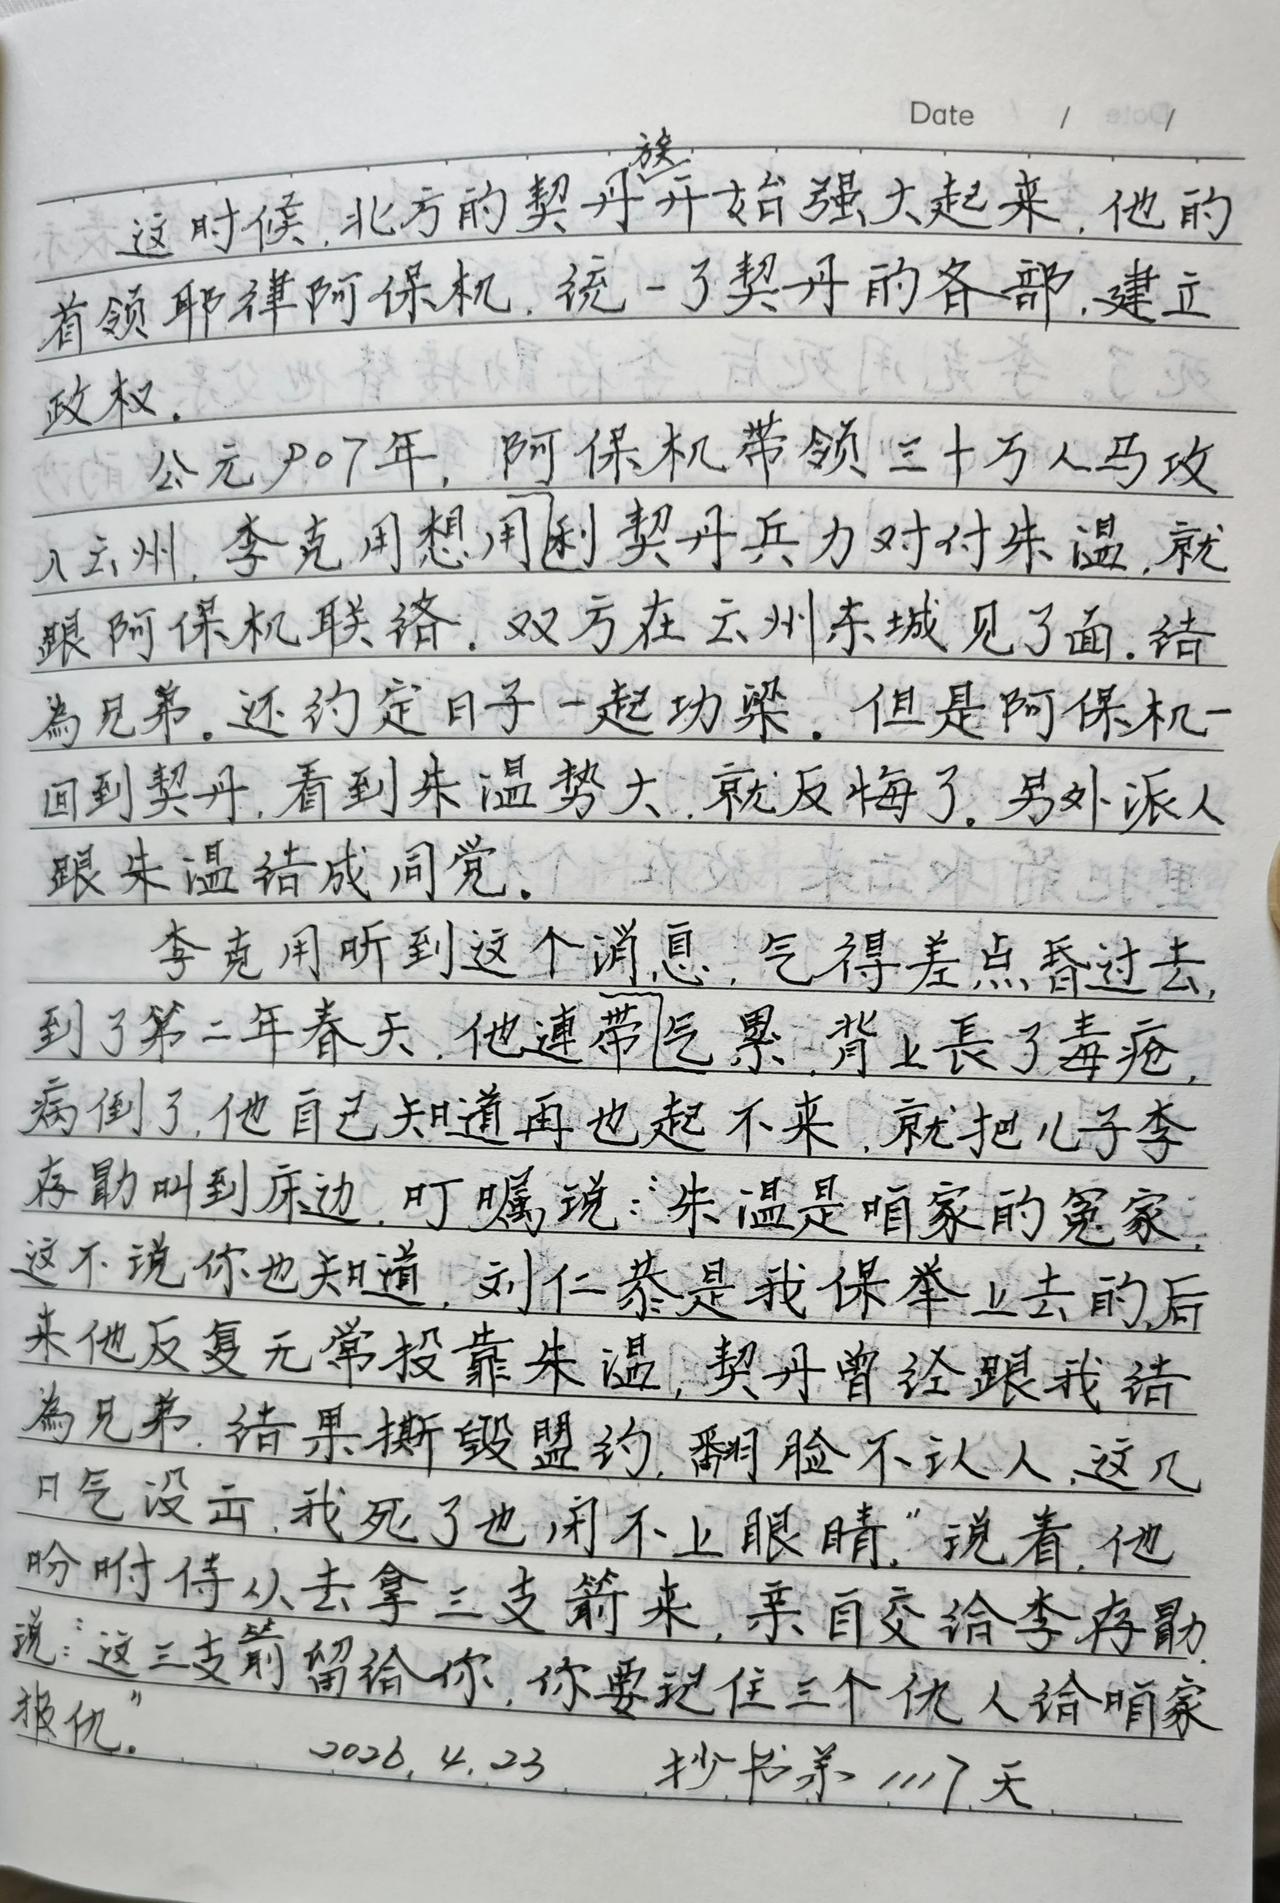 Date / /
这时候,北方的契丹族开始强大起来,他的
首领耶律阿保机,统一了契丹的各部,建立
政权.
公元907年,阿保机带领三十万人马攻
入云州,李克用想用利契丹兵力对付朱温,就
跟阿保机联络.双方在云州东城见了面.结
為兄弟。还约定日子一起功梁.但是阿保机一
回到契丹,看到朱温势大,就反悔了。另外派人
跟朱温结成同党.
李克用听到这个消息,气得差点昏过去,
到了第二年春天,他連带气累,背上長了毒疮,
病倒了,他自己知道再也起不来,就把儿子李
存勖叫到床边,叮嘱说:“朱温是咱家的冤家,
这不说你也知道,刘仁恭是我保举上去的,后
来他反复无常投靠朱温,契丹曾经跟我结
為兄弟,结果撕毁盟约,翻脸不认人,这几
口气没出,我死了也闭不上眼睛.”说着,他
吩咐侍从去拿三支箭来,亲自交给李存勖,
说:“这三支箭留给你,你要记住三个仇人给咱家
报仇.”
2026.4.23 抄书第1117天